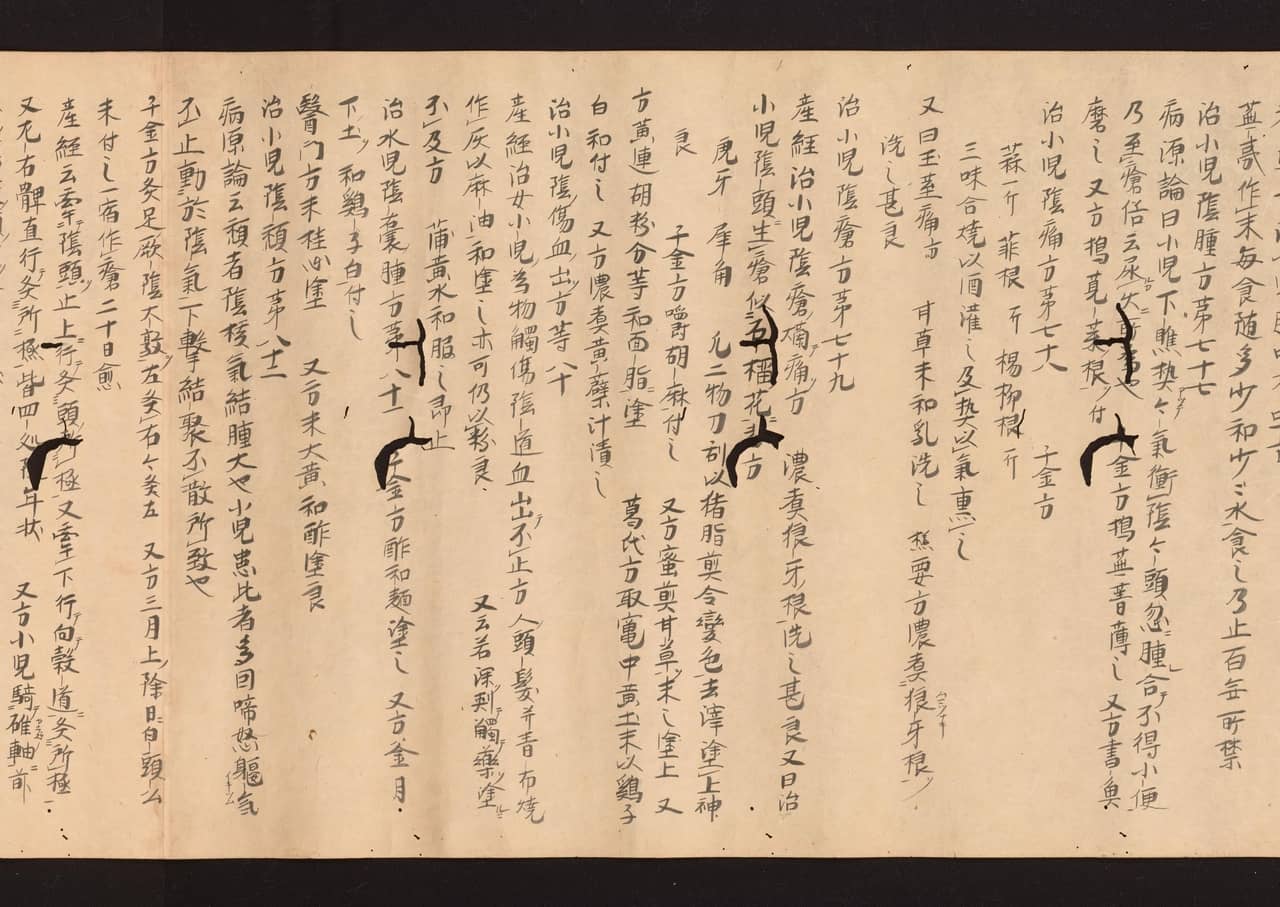 盖義作末毎食随多少和少〻水食之乃止百無所禁
治小児陰腫方第七十七
病源論曰小児下膲熱〻氣衝陰〻頭忽腫合不得小便
乃至瘡俗云尿
磨之 又方搗莧菜根付 千金方搗蕪菁薄之 又方書奥
治小児陰痛方第七十八 千金方
蒜一斤 菲根一斤 楊柳根一斤
三味合焼以酒灌之及熱以氣熏之
又曰玉茎痛方 甘草末和乳洗之 樵要方濃煮狼牙根
洗之甚良
治小児陰瘡方第七十九
産経治小児陰瘡爛痛方 濃煮狼牙根洗之甚良又曰治
小児陰頭生瘡似石榴花状方
虎牙 犀角 凡二物刀刮以猪脂煎令變色去滓塗上神
良 千金方嚼胡麻付之 又方蜜煎甘草末之塗上 又
方黄連胡粉分等和面脂塗 葛氏方取竃中黄土末以鶏子
白和付之 又方濃煮黄蘗汁漬之
治小児陰傷血出方第八十
産経治女小児為物觸傷陰道血出不止方 人頭髪并青布焼
作灰以麻油和塗之亦可仍以粉良
不及方 蒲黄水和服之即止 又云若深刺觸藥塗
治水児陰嚢腫方第八十一 千金方酢和麺塗之 又方釜月
下土 和鶏子白付之
醫門方末桂心塗 又方末大黄和酢塗良
治小児陰㿗方第八十二
病原論云㿗者陰核氣結腫大也小児患此者多因啼怒軀氣
不止動於陰氣下撃結聚不散所致也
千金方灸足厥陰大敦左灸右〻灸左 又方三月上除日白頭公
末付之一宿作瘡二十日愈
産経云牽陰頭上行灸頭所極又牽下行向穀道灸所極
又九右髀直行灸所極皆四処随年状 又方小児騎碓軸前